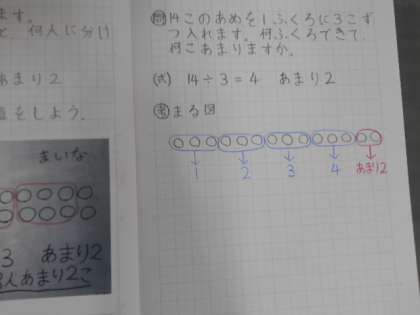 ます。
と、何人に分け
あまり2
をしよう。
まいな
3 あまり2
人あまり2こ
問 14このあめを1ふくろに3こず
つ入れます。何ふくろできて、
何こあまりますか。
式 14÷3=4 あまり2
考 まる図
1 2 3 4 あまり2